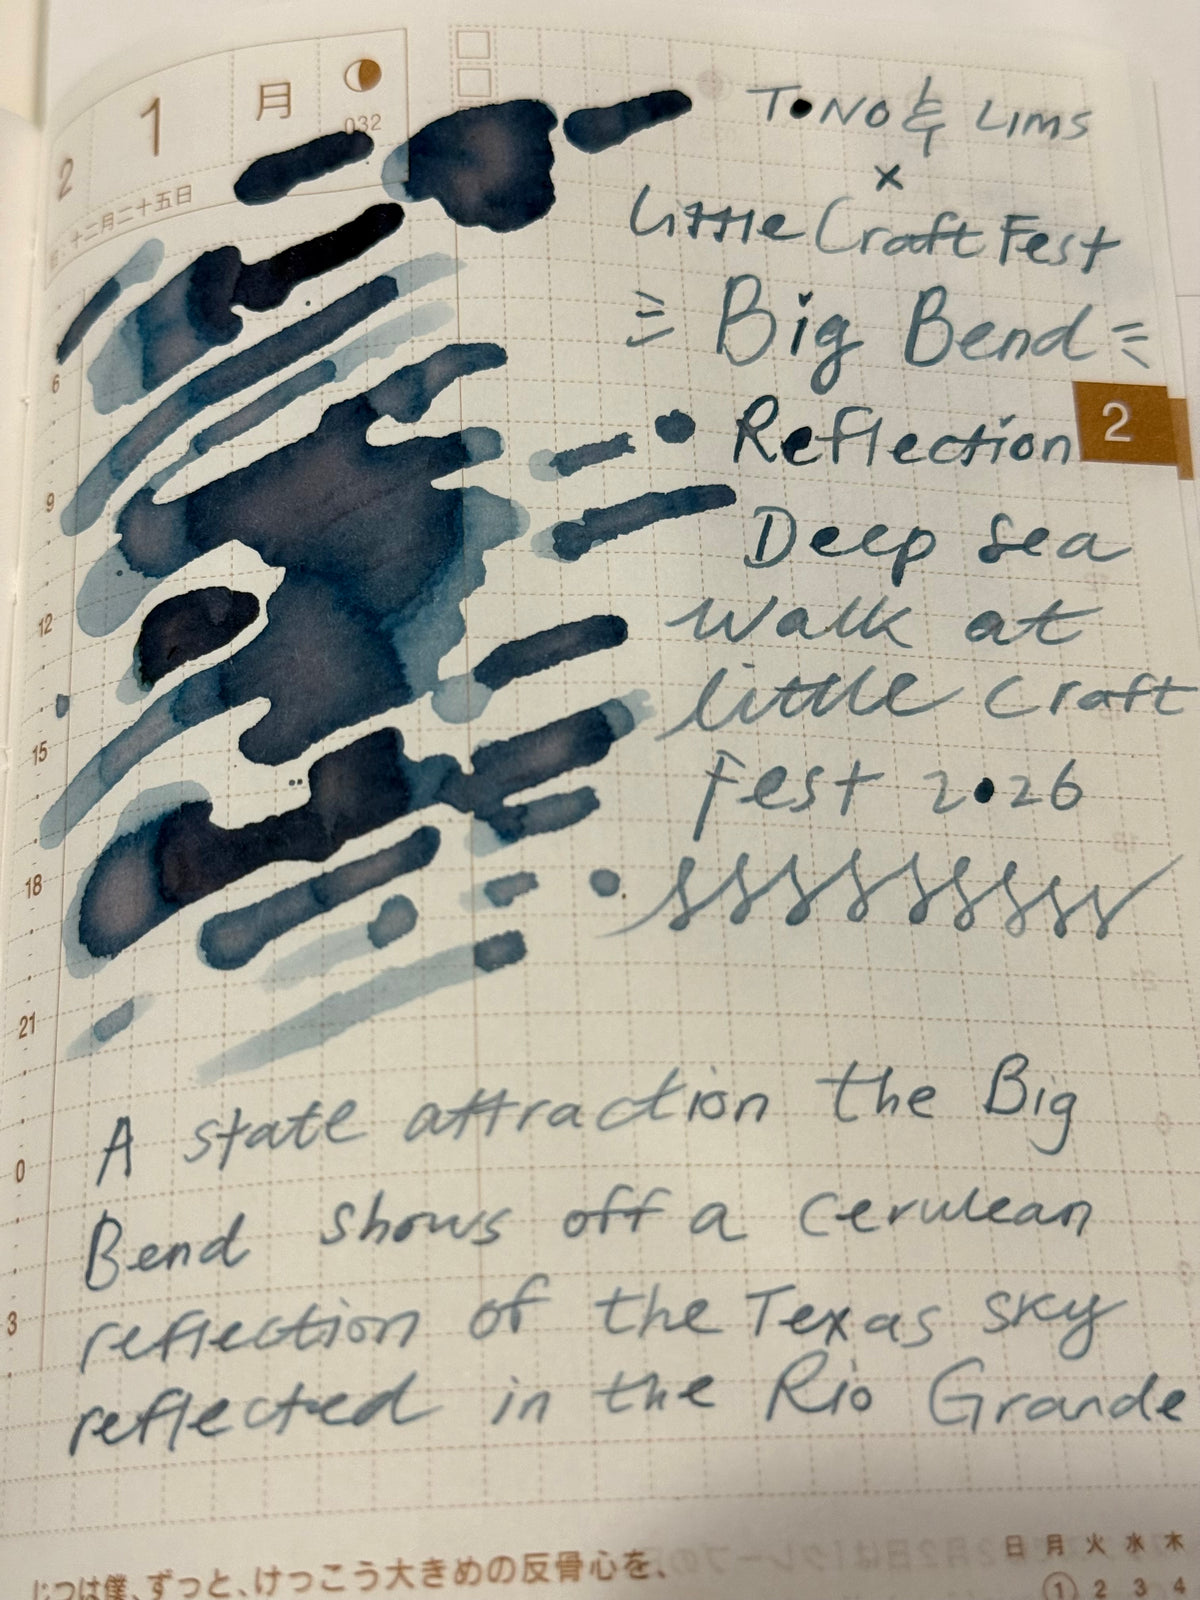 2
1
月
032
十二月二十五日
TONO & LIMS
×
Little Craft Fest
Big Bend
Reflection
2
Deep Sea
Walk at
little craft
Fest 2026
6
9
12
15
18
21
0
3
A state attraction the Big
Bend shows off a cerulean
reflection of the Texas sky
reflected in the Rio Grande
じつは僕、ずっと、けっこう大きめの反骨心を、
日 月 火 水 木
1 2 3 4